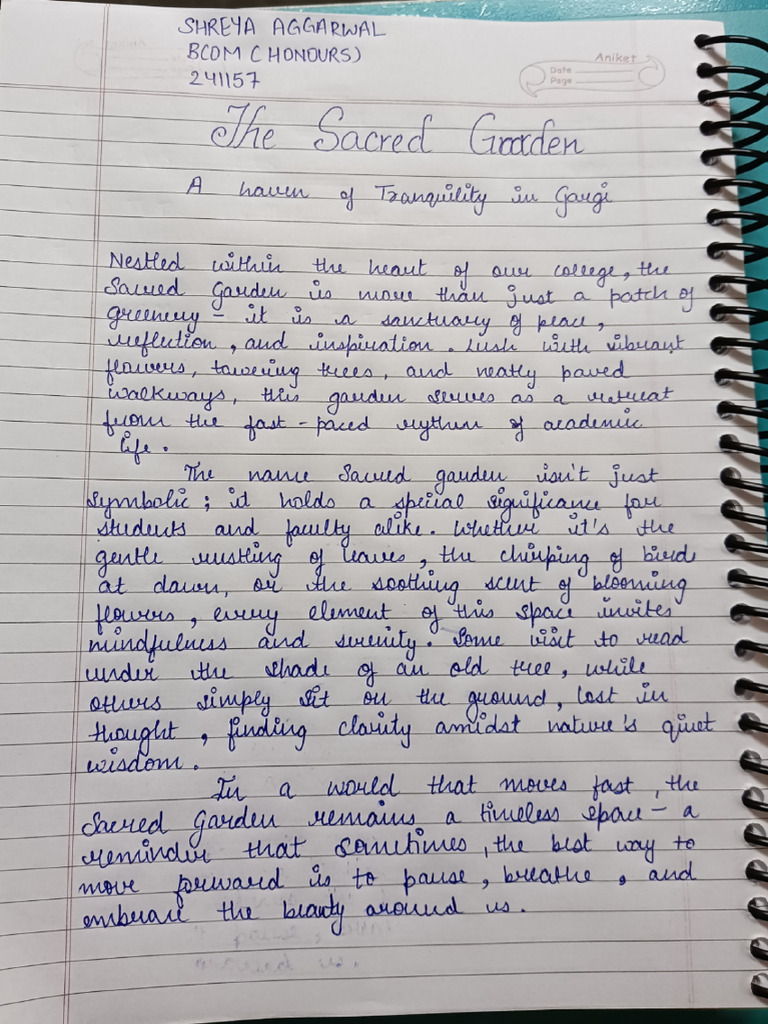 SHREYA AGGARWAL
BCOM (HONOURS)
241157
Aniket
Date
Page
The Sacred Garden
A haven of Tranquility in Gargi
Nestled within the heart of our college, the
Sacred Garden is more than just a patch of
greenery - it is a sanctuary of peace,
reflection, and inspiration. Lush with vibrant
flowers, towering trees, and neatly paved
walkways, this garden serves as a retreat
from the fast-paced rythm of academic
life.
The name Sacred garden isn't just
symbolic; it holds a special significance for
students and faculty alike. Whether it's the
gentle rustling of leaves, the chirping of birds
at dawn, or the soothing scent of blooming
flowers, every element of this space invites
mindfulness and serenity. Some visit to read
under the shade of an old tree, while
others simply sit on the ground, lost in
thought, finding clarity amidst nature's quiet
wisdom.
In a world that moves fast, the
Sacred Garden remains a timeless space - a
reminder that sometimes, the best way to
move forward is to pause, breathe, and
embrace the beauty around us.